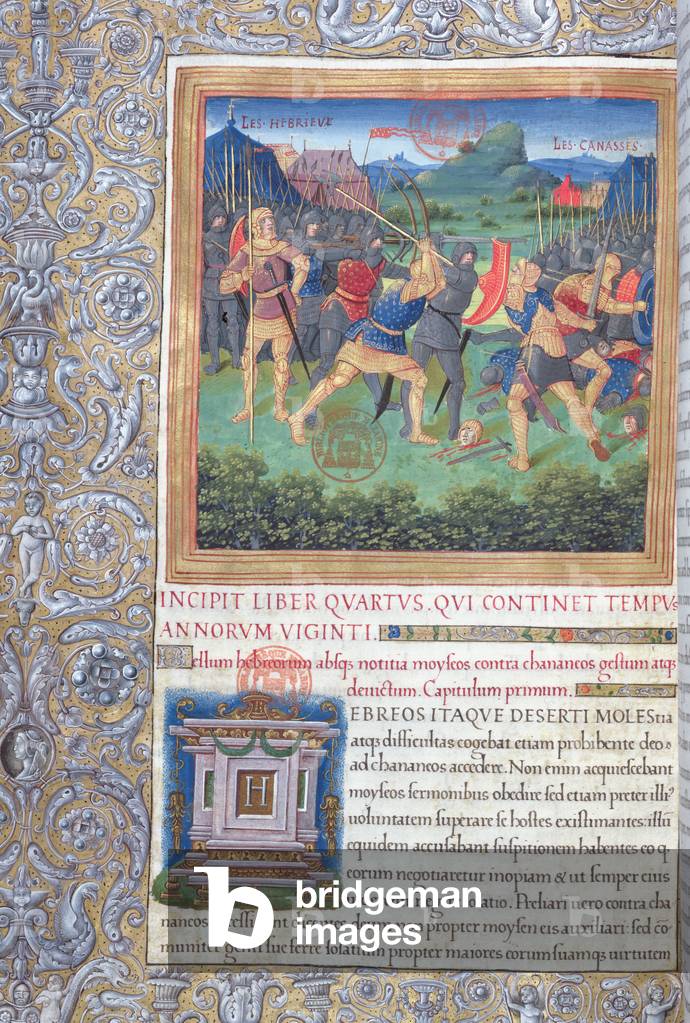 LES·HEBRIEVX
LES·CANASSES·
INCIPIT LIBER QVARTVS. QVI CONTINET TEMPVS
ANNORVM VIGINTI.
Bellum hebreorum absqȝ notitia moyseos contra chananeos gestum atqȝ
deuictum. Capitulum primum.
H
EBREOS ITAQVE DESERTI MOLEStia
atqȝ difficultas cogebat etiam prohibente deo
ad chananeos accedere. Non enim acquiescebant
moyseos sermonibus obedire sed etiam preter illiꝰ
uoluntatem superare se hostes existimantes: illū
equidem accusabant suspitionem habentes eo q
eorum negotiaretur inopiam & ut semper eius
Preliari uero contra cha
naneos propter moysen eis auxiliari: sed cō
muniter ferre solatium propter maiores eorum suamqȝ uirtutem
bridgeman
images